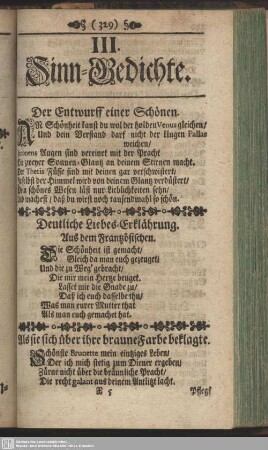 (329)
III.
Sinn-Gedichte.
Der Entwurff einer Schönen.
AN Schönheit kanst du wol der holden Venus gleichen/
Und dein Verstand darf nicht der klugen Pallas
weichen/
Augen sind vereinet mit der Pracht
zweyer Sonnen-Glantz an deinem Stirnen macht.
Thetis Füsse sind mit deinen gar verschwistert/
selbst der Himmel wird von deinem Glantz verdüstert/
schönes Wesen läst nur Lieblichkeiten sehn/
machest/ daß du wirst noch tausendmahl so schön.
Deutliche Liebes-Erklährung.
Aus dem Frantzösischen.
Die Schönheit ist gemacht/
Gleich da man euch gezeuget/
Und die zu Weg' gebracht/
Die mir mein Hertze beuget.
Lasset mir die Gnade zu/
Daß ich euch dasselbe thu/
Was man eurer Mutter that
Als man euch gemachet hat.
Als sie sich über ihre braune Farbe beklagte.
Schönste Brunette mein eintziges Leben/
Der ich mich stetig zum Diener ergeben/
Zürnt nicht über die bräunliche Pracht/
Die recht galant aus deinem Antlitz lacht.
R 5
Pflegt